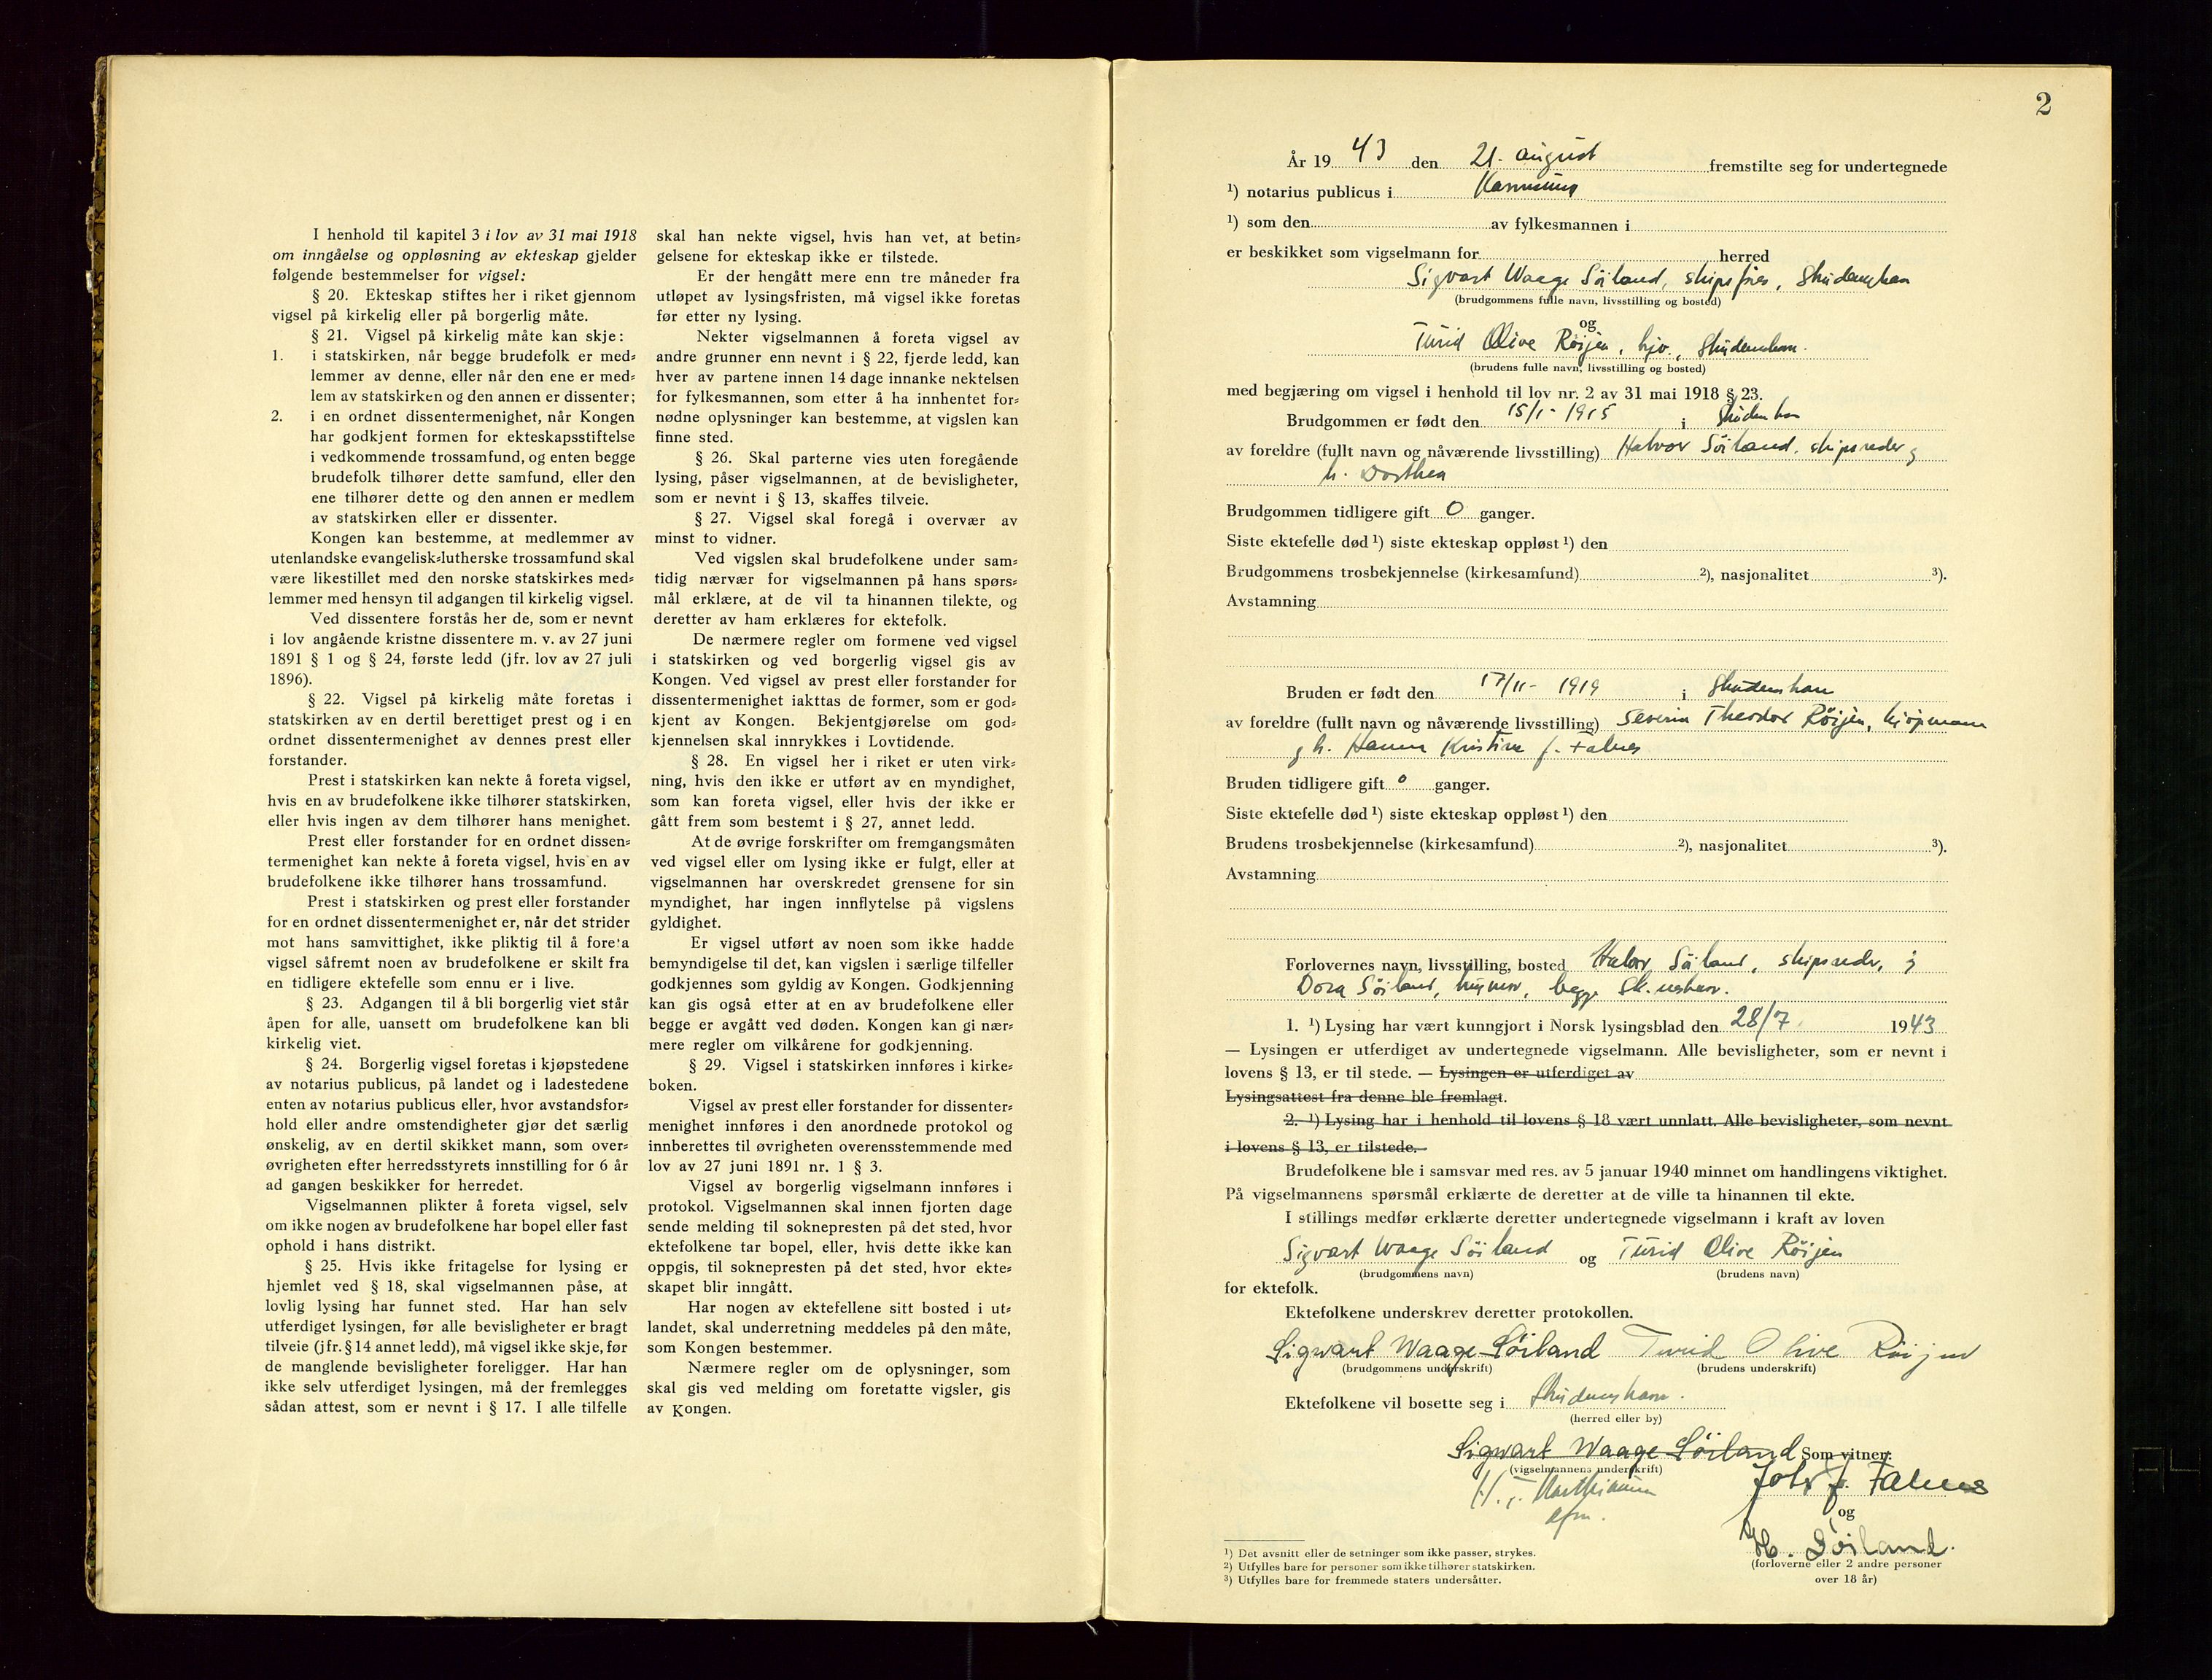 I henhold til kapitel 3 i lov av 31 mai 1918
om inngåelse og oppløsning av ekteskap gjelder
følgende bestemmelser for vigsel:
§ 20. Ekteskap stiftes her i riket gjennom
vigsel på kirkelig eller på borgerlig måte.
§ 21. Vigsel på kirkelig måte kan skje:
1. i statskirken, når begge brudefolk er med=
lemmer av denne, eller når den ene er med=
lem av statskirken og den annen er dissenter;
2. i en ordnet dissentermenighet, når Kongen
har godkjent formen for ekteskapsstiftelse
i vedkommende trossamfund, og enten begge
brudefolk tilhører dette samfund, eller den
ene tilhører dette og den annen er medlem
av statskirken eller er dissenter.
Kongen kan bestemme, at medlemmer av
utenlandske evangelisk=lutherske trossamfund skal
være likestillet med den norske statskirkes med=
lemmer med hensyn til adgangen til kirkelig vigsel.
Ved dissentere forstås her de, som er nevnt
i lov angående kristne dissentere m. v. av 27 juni
1891 § 1 og § 24, første ledd (jfr. lov av 27 juli
1896).
§ 22. Vigsel på kirkelig måte foretas i
statskirken av en dertil berettiget prest og i en
ordnet dissentermenighet av dennes prest eller
forstander.
Prest i statskirken kan nekte å foreta vigsel,
hvis en av brudefolkene ikke tilhører statskirken,
eller hvis ingen av dem tilhører hans menighet.
Prest eller forstander for en ordnet dissen=
termenighet kan nekte å foreta vigsel, hvis en av
brudefolkene ikke tilhører hans trossamfund.
Prest i statskirken og prest eller forstander
for en ordnet dissentermenighet er, når det strider
mot hans samvittighet, ikke pliktig til å foreta
vigsel såfremt noen av brudefolkene er skilt fra
en tidligere ektefelle som ennu er i live.
§ 23. Adgangen til å bli borgerlig viet står
åpen for alle, uansett om brudefolkene kan bli
kirkelig viet.
§ 24. Borgerlig vigsel foretas i kjøpstedene
av notarius publicus, på landet og i ladestedene
enten av notarius publicus eller, hvor avstandsfor=
hold eller andre omstendigheter gjør det særlig
ønskelig, av en dertil skikket mann, som over=
øvrigheten efter herredsstyrets innstilling for 6 år
ad gangen beskikker for herredet.
Vigselmannen plikter å foreta vigsel, selv
om ikke nogen av brudefolkene har bopel eller fast
ophold i hans distrikt.
§ 25. Hvis ikke fritagelse for lysing er
hjemlet ved § 18, skal vigselmannen påse, at
lovlig lysing har funnet sted. Har han selv
utferdiget lysingen, før alle bevisligheter er bragt
tilveie (jfr. § 14 annet ledd), må vigsel ikke skje, før
de manglende bevisligheter foreligger. Har han
ikke selv utferdiget lysingen, må der fremlegges
sådan attest, som er nevnt i § 17. I alle tilfelle
skal han nekte vigsel, hvis han vet, at betin=
gelsene for ekteskap ikke er tilstede.
Er der hengått mere enn tre måneder fra
utløpet av lysingsfristen, må vigsel ikke foretas
før etter ny lysing.
Nekter vigselmannen å foreta vigsel av
andre grunner enn nevnt i § 22, fjerde ledd, kan
hver av partene innen 14 dage innanke nektelsen
for fylkesmannen, som etter å ha innhentet for=
nødne oplysninger kan bestemme, at vigslen kan
finne sted.
§ 26. Skal parterne vies uten foregående
lysing, påser vigselmannen, at de bevisligheter,
som er nevnt i § 13, skaffes tilveie.
§ 27. Vigsel skal foregå i overvær av
minst to vidner.
Ved vigslen skal brudefolkene under sam=
tidig nærvær for vigselmannen på hans spørs=
mål erklære, at de vil ta hinannen tilekte, og
deretter av ham erklæres for ektefolk.
De nærmere regler om formene ved vigsel
i statskirken og ved borgerlig vigsel gis av
Kongen. Ved vigsel av prest eller forstander for
dissentermenighet iakttas de former, som er god=
kjent av Kongen. Bekjentgjørelse om god=
kjennelsen skal innrykkes i Lovtidende.
§ 28. En vigsel her i riket er uten virk=
ning, hvis den ikke er utført av en myndighet,
som kan foreta vigsel, eller hvis der ikke er
gått frem som bestemt i § 27, annet ledd.
At de øvrige forskrifter om fremgangsmåten
ved vigsel eller om lysing ikke er fulgt, eller at
vigselmannen har overskredet grensene for sin
myndighet, har ingen innflytelse på vigslens
gyldighet.
Er vigsel utført av noen som ikke hadde
bemyndigelse til det, kan vigslen i særlige tilfeller
godkjennes som gyldig av Kongen. Godkjenning
kan gis også etter at en av brudefolkene eller
begge er avgått ved døden. Kongen kan gi nær=
mere regler om vilkårene for godkjenning.
§ 29. Vigsel i statskirken innføres i kirke=
boken.
Vigsel av prest eller forstander for dissenter=
menighet innføres i den anordnede protokol og
innberettes til øvrigheten overensstemmende med
lov av 27 juni 1891 nr. 1 § 3.
Vigsel av borgerlig vigselmann innføres i
protokol. Vigselmannen skal innen fjorten dage
sende melding til soknepresten på det sted, hvor
ektefolkene tar bopel, eller, hvis dette ikke kan
oppgis, til soknepresten på det sted, hvor ekte=
skapet blir inngått.
Har nogen av ektefellene sitt bosted i ut=
landet, skal underretning meddeles på den måte,
som Kongen bestemmer.
Nærmere regler om de oplysninger, som
skal gis ved melding om foretatte vigsler, gis
av Kongen.
2
År 19 43 den 21. august fremstilte seg for undertegnede
¹) notarius publicus i Karmsund
¹) som den av fylkesmannen i
er beskikket som vigselmann for herred
Sigvart Waage Söiland, skipsfører, Skudeneshavn
(brudgommens fulle navn, livsstilling og bosted)
og
Turid Olive Röijen, hjv., Skudeneshavn.
(brudens fulle navn, livsstilling og bosted)
med begjæring om vigsel i henhold til lov nr. 2 av 31 mai 1918 § 23.
Brudgommen er født den 15/1- 1915 i Skudeneshavn
av foreldre (fullt navn og nåværende livsstilling) Halvor Söiland, skipsreder og
h. Dorthea
Brudgommen tidligere gift 0 ganger.
Siste ektefelle død ¹) siste ekteskap oppløst ¹) den
Brudgommens trosbekjennelse (kirkesamfund) ²), nasjonalitet ³).
Avstamning
Bruden er født den 17/11- 1919 i Skudeneshavn
av foreldre (fullt navn og nåværende livsstilling) Severin Theodor Röijen, kjøpmann
og h. Hanna Kristine f. Falnes
Bruden tidligere gift 0 ganger.
Siste ektefelle død ¹) siste ekteskap oppløst ¹) den
Brudens trosbekjennelse (kirkesamfund) ²), nasjonalitet ³).
Avstamning
Forlovernes navn, livsstilling, bosted Halvor Söiland, skipsreder, og
Dora Söiland, husmor, begge Sk.neshavn.
1. ¹) Lysing har vært kunngjort i Norsk lysingsblad den 28/7 1943
— Lysingen er utferdiget av undertegnede vigselmann. Alle bevisligheter, som er nevnt i
lovens § 13, er til stede. — Lysingen er utferdiget av
Lysingsattest fra denne ble fremlagt.
2. ¹) Lysing har i henhold til lovens § 18 vært unnlatt. Alle bevisligheter, som nevnt
i lovens § 13, er tilstede.
Brudefolkene ble i samsvar med res. av 5 januar 1940 minnet om handlingens viktighet.
På vigselmannens spørsmål erklærte de deretter at de ville ta hinannen til ekte.
I stillings medfør erklærte deretter undertegnede vigselmann i kraft av loven
Sigvart Waage Söiland og Turid Olive Röijen
(brudgommens navn) (brudens navn)
for ektefolk.
Ektefolkene underskrev deretter protokollen.
Sigwart Waage Söiland Turid Olive Röijen
(brudgommens underskrift) (brudens underskrift)
Ektefolkene vil bosette seg i Skudeneshavn.
(herred eller by)
Sigwart Waage Söiland Som vitner:
(vigselmannens underskrift)
John J. Falnes
og
H. Söiland.
(forloverne eller 2 andre personer
over 18 år)
¹) Det avsnitt eller de setninger som ikke passer, strykes.
²) Utfylles bare for personer som ikke tilhører statskirken.
³) Utfylles bare for fremmede staters undersåtter.